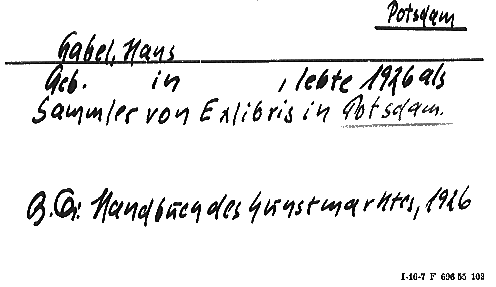 Potsdam
Gabel, Hans
Geb. in , lebte 1926 als
Sammler von Exlibris in Potsdam.
B.Qu: Handbuch des Kunstmarktes, 1926
I-10-7 F 696 55 102